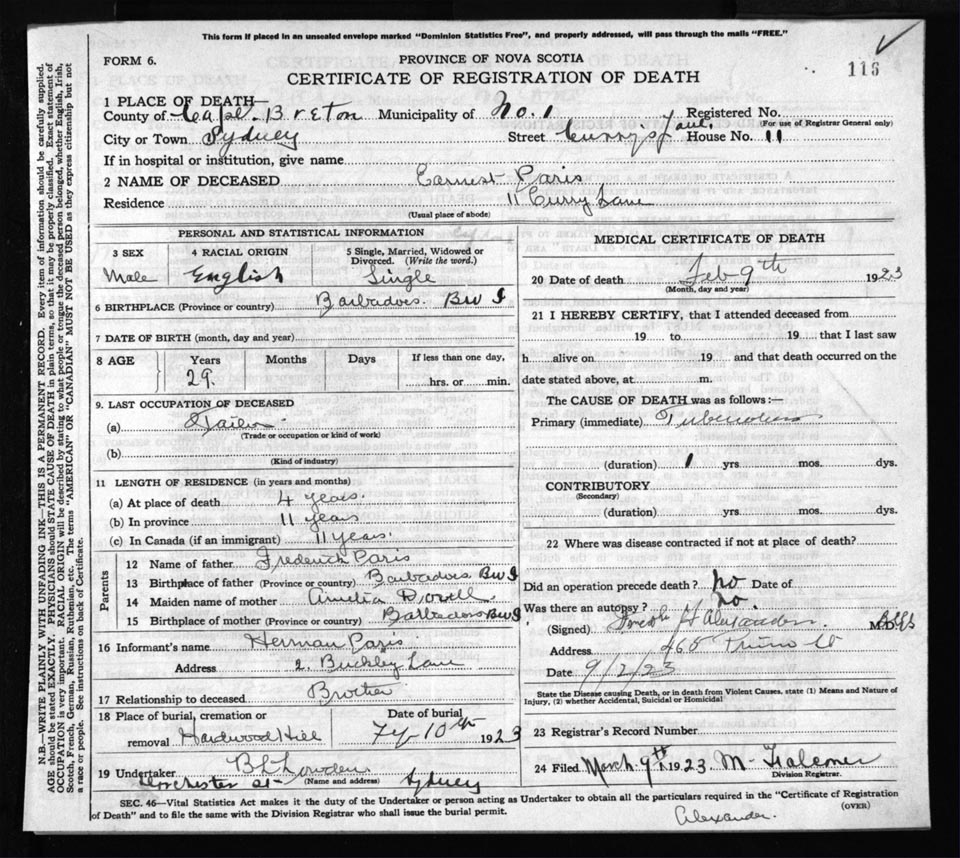 This form if placed in an unsealed envelope marked "Dominion Statistics Free", and properly addressed, will pass through the mails "FREE."
FORM 6.
PROVINCE OF NOVA SCOTIA
CERTIFICATE OF REGISTRATION OF DEATH
116
1 PLACE OF DEATH—
County of Cape Breton Municipality of No. 1 Registered No.
(For use of Registrar General only)
City or Town Sydney Street Curry's Lane House No. 11
If in hospital or institution, give name
2 NAME OF DECEASED Earnest Paris
Residence 11 Curry Lane
(Usual place of abode)
PERSONAL AND STATISTICAL INFORMATION
3 SEX 4 RACIAL ORIGIN 5 Single, Married, Widowed or Divorced. (Write the word.)
Male English Single
6 BIRTHPLACE (Province or country) Barbadoes. BWI
7 DATE OF BIRTH (month, day and year)
8 AGE Years Months Days If less than one day,
29. hrs. or min.
9. LAST OCCUPATION OF DECEASED
(a) Tailor
(Trade or occupation or kind of work)
(b)
(Kind of industry)
11 LENGTH OF RESIDENCE (in years and months)
(a) At place of death 4 years.
(b) In province 11 years
(c) In Canada (if an immigrant) 11 years.
Parents
12 Name of father Frederick Paris
13 Birthplace of father (Province or country) Barbadoes BWI
14 Maiden name of mother Amelia
15 Birthplace of mother (Province or country) Barbadoes BWI
16 Informant's name Herman Paris
Address 2. Buckley Lane
17 Relationship to deceased Brother
18 Place of burial, cremation or removal Hardwood Hill
Date of burial
Fy 10th 1923
19 Undertaker
(Name and address)
Dorchester St Sydney
MEDICAL CERTIFICATE OF DEATH
20 Date of death Feb 9th 1923
(Month, day and year)
21 I HEREBY CERTIFY, that I attended deceased from
19 to 19 that I last saw
h alive on 19 and that death occurred on the
date stated above, at m.
The CAUSE OF DEATH was as follows:—
Primary (immediate) Tuberculosis
(duration) 1 yrs. mos. dys.
CONTRIBUTORY
(Secondary)
(duration) yrs. mos. dys.
22 Where was disease contracted if not at place of death?
Did an operation precede death? No Date of
Was there an autopsy? No.
(Signed) Alexander M.D.
Address 465 Prince St
Date 9/2/23
State the Disease causing Death, or in death from Violent Causes, state (1) Means and Nature of Injury, (2) whether Accidental, Suicidal or Homicidal
23 Registrar's Record Number
24 Filed March 9th 1923 M Falconer
Division Registrar.
SEC. 46—Vital Statistics Act makes it the duty of the Undertaker or person acting as Undertaker to obtain all the particulars required in the "Certificate of Registration
of Death" and to file the same with the Division Registrar who shall issue the burial permit.
(OVER)
Alexander.
N.B.—WRITE PLAINLY WITH UNFADING INK—THIS IS A PERMANENT RECORD. Every item of information should be carefully supplied.
AGE should be stated EXACTLY. PHYSICIANS should STATE CAUSE OF DEATH in plain terms, so that it may be properly classified. Exact statement of
OCCUPATION is very important. RACIAL ORIGIN will be described by stating to what people or tongue the deceased person belonged, whether English, Irish,
Scotch, French, German, Russian, Ruthenian etc. The terms "AMERICAN" OR "CANADIAN" MUST NOT BE USED as they express citizenship but not
a race or people. See instructions on back of Certificate.